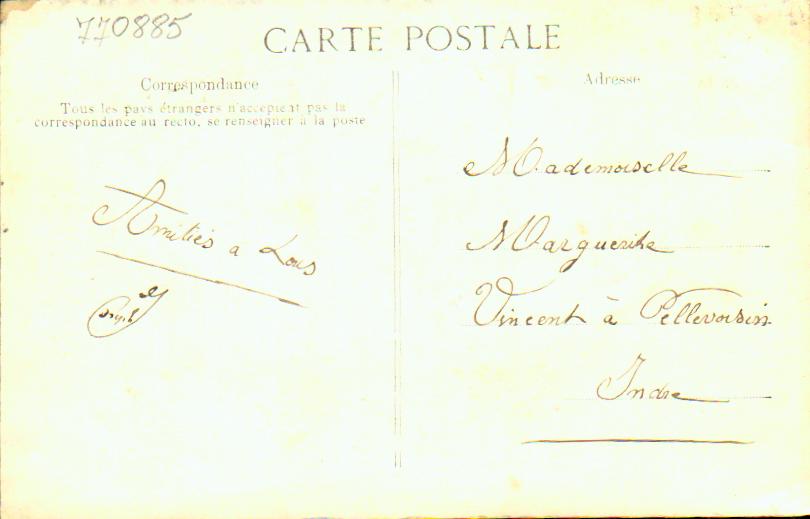 770885
CARTE POSTALE
Correspondance
Tous les pays étrangers n'acceptent pas la
correspondance au recto, se renseigner à la poste
Amitiés a Tous
Adresse
Mademoiselle
Marguerite
Vincent à Pellevoisin
Indre